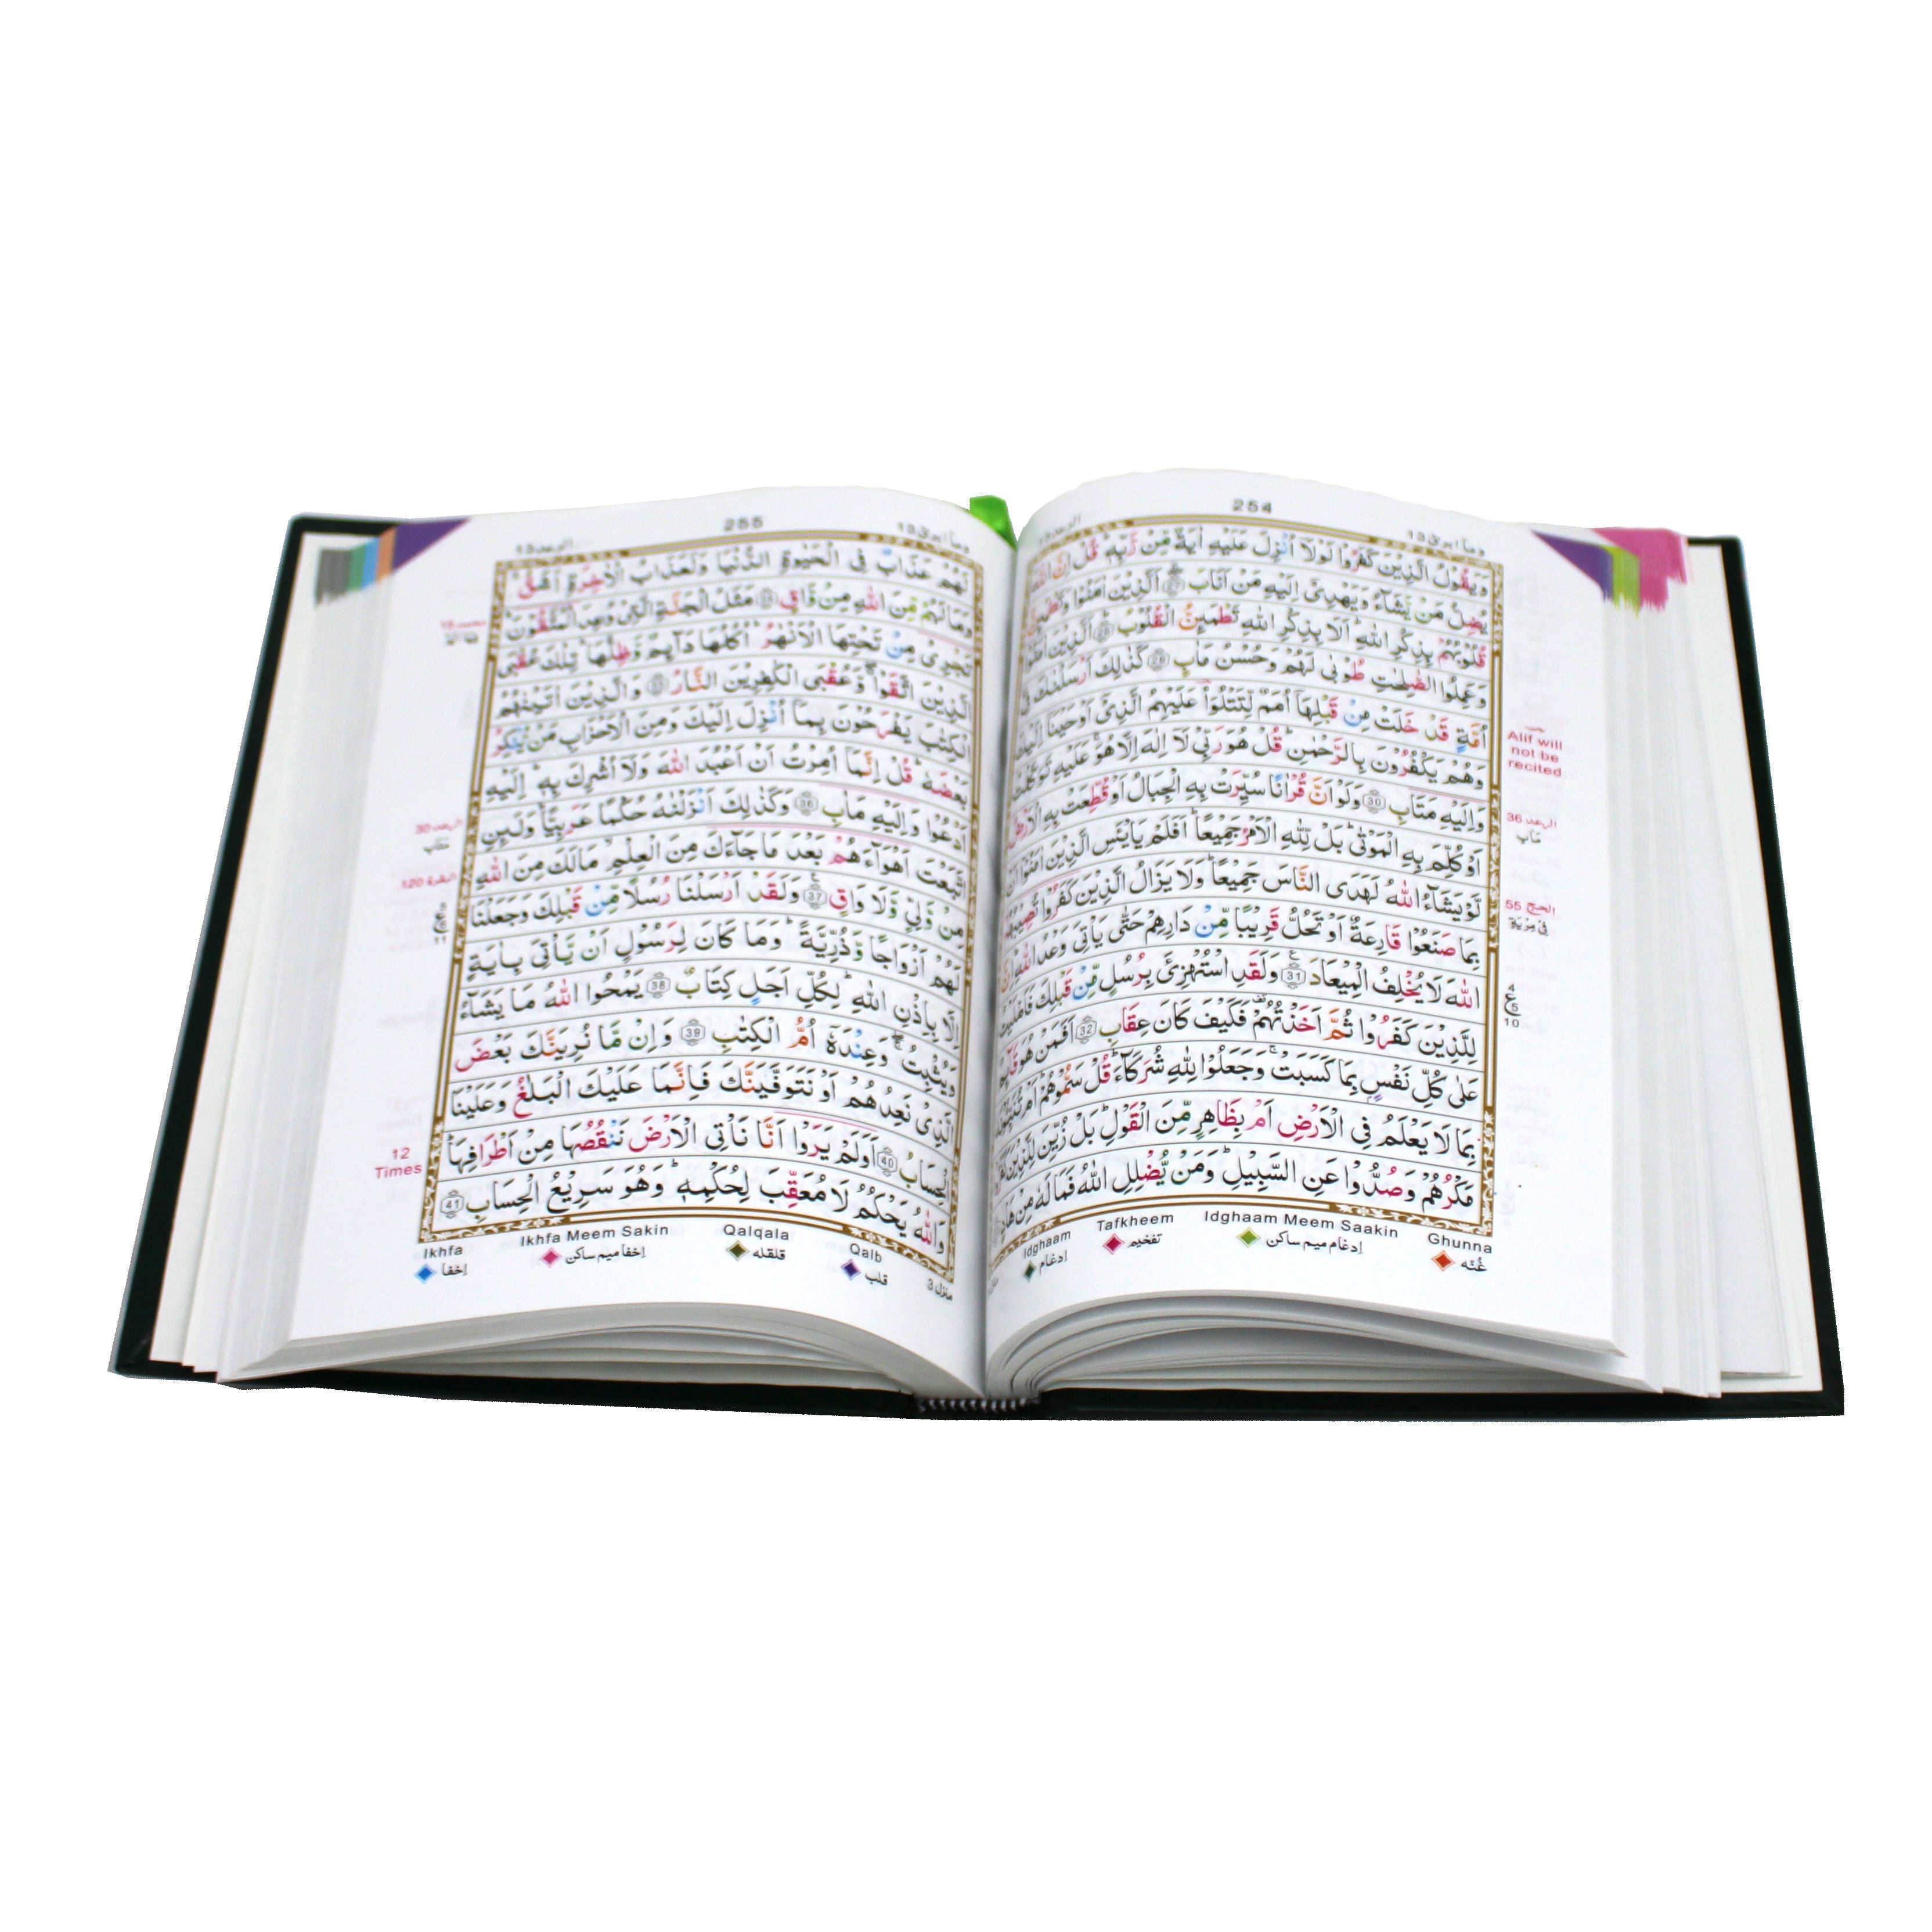 254
وما ابرئ 13
وَيَقُوْلُ الَّذِيْنَ كَفَرُوْا لَوْلَآ اُنْزِلَ عَلَيْهِ اٰيَةٌ مِّنْ رَّبِّهٖ ؕ قُلْ اِنَّ اللّٰهَ
يُضِلُّ مَنْ يَّشَآءُ وَيَهْدِىْۤ اِلَيْهِ مَنْ اَنَابَ ۖۚ اَلَّذِيْنَ اٰمَنُوْا وَتَطْمَئِنُّ
قُلُوْبُهُمْ بِذِكْرِ اللّٰهِ ؕ اَلَا بِذِكْرِ اللّٰهِ تَطْمَئِنُّ الْقُلُوْبُ 28 اَلَّذِيْنَ اٰمَنُوْا
وَعَمِلُوا الصّٰلِحٰتِ طُوْبٰى لَهُمْ وَحُسْنُ مَاٰبٍ 29 كَذٰلِكَ اَرْسَلْنٰكَ فِىْۤ
اُمَّةٍ قَدْ خَلَتْ مِنْ قَبْلِهَاۤ اُمَمٌ لِّتَتْلُوَا۟ عَلَيْهِمُ الَّذِىْۤ اَوْحَيْنَاۤ اِلَيْكَ
وَهُمْ يَكْفُرُوْنَ بِالرَّحْمٰنِ ؕ قُلْ هُوَ رَبِّىْ لَاۤ اِلٰهَ اِلَّا هُوَ ۚ عَلَيْهِ تَوَكَّلْتُ
وَاِلَيْهِ مَتَابِ 30 وَلَوْ اَنَّ قُرْاٰنًا سُيِّرَتْ بِهِ الْجِبَالُ اَوْ قُطِّعَتْ بِهِ الْاَرْضُ
اَوْ كُلِّمَ بِهِ الْمَوْتٰى ؕ بَلْ لِّلّٰهِ الْاَمْرُ جَمِيْعًا ؕ اَفَلَمْ يَايْـَٔسِ الَّذِيْنَ اٰمَنُوْۤا اَنْ
لَّوْ يَشَآءُ اللّٰهُ لَهَدَى النَّاسَ جَمِيْعًا ؕ وَلَا يَزَالُ الَّذِيْنَ كَفَرُوْا تُصِيْبُهُمْ
بِمَا صَنَعُوْا قَارِعَةٌ اَوْ تَحُلُّ قَرِيْبًا مِّنْ دَارِهِمْ حَتّٰى يَاْتِىَ وَعْدُ اللّٰهِ ؕ اِنَّ
اللّٰهَ لَا يُخْلِفُ الْمِيْعَادَ 31 وَلَقَدِ اسْتُهْزِئَ بِرُسُلٍ مِّنْ قَبْلِكَ فَاَمْلَيْتُ
لِلَّذِيْنَ كَفَرُوْا ثُمَّ اَخَذْتُهُمْ ۫ فَكَيْفَ كَانَ عِقَابِ 32 اَفَمَنْ هُوَ قَآئِمٌ
عَلٰى كُلِّ نَفْسٍۢ بِمَا كَسَبَتْ ۚ وَجَعَلُوْا لِلّٰهِ شُرَكَآءَ ؕ قُلْ سَمُّوْهُمْ ؕ اَمْ تُنَبِّـُٔوْنَهٗ
بِمَا لَا يَعْلَمُ فِى الْاَرْضِ اَمْ بِظَاهِرٍ مِّنَ الْقَوْلِ ؕ بَلْ زُيِّنَ لِلَّذِيْنَ
مَكْرُهُمْ وَصُدُّوْا عَنِ السَّبِيْلِ ؕ وَمَنْ يُّضْلِلِ اللّٰهُ فَمَا لَهٗ مِنْ هَادٍ
Alif will
not be
recited
الرعد 36
مَاٰب
الحج 55
فِىْ مِرْيَةٍ
4
ع
5
10
Ghunna
غُنّه
Idghaam Meem Saakin
اِدغام میم ساکن
Tafkheem
تفخیم
Idghaam
اِدغام
255
وما ابرئ 13
الرعد 13
لَهُمْ عَذَابٌ فِى الْحَيٰوةِ الدُّنْيَا وَلَعَذَابُ الْاٰخِرَةِ اَشَقُّ ۚ
وَمَا لَهُمْ مِّنَ اللّٰهِ مِنْ وَّاقٍ مَثَلُ الْجَنَّةِ الَّتِىْ وُعِدَ الْمُتَّقُوْنَ ؕ
تَجْرِىْ مِنْ تَحْتِهَا الْاَنْهٰرُ ؕ اُكُلُهَا دَآئِمٌ وَّظِلُّهَا ؕ تِلْكَ عُقْبَى
الَّذِيْنَ اتَّقَوْا ۖ وَّعُقْبَى الْكٰفِرِيْنَ النَّارُ وَالَّذِيْنَ اٰتَيْنٰهُمُ
الْكِتٰبَ يَفْرَحُوْنَ بِمَاۤ اُنْزِلَ اِلَيْكَ وَمِنَ الْاَحْزَابِ مَنْ يُّنْكِرُ
بَعْضَهٗ ؕ قُلْ اِنَّمَاۤ اُمِرْتُ اَنْ اَعْبُدَ اللّٰهَ وَلَاۤ اُشْرِكَ بِهٖ ؕ اِلَيْهِ
اَدْعُوْا وَاِلَيْهِ مَاٰبِ 36 وَكَذٰلِكَ اَنْزَلْنٰهُ حُكْمًا عَرَبِيًّا ؕ وَلَئِنِ
اتَّبَعْتَ اَهْوَآءَهُمْ بَعْدَ مَا جَآءَكَ مِنَ الْعِلْمِ ۙ مَا لَكَ مِنَ اللّٰهِ
مِنْ وَّلِىٍّ وَّلَا وَاقٍ 37 وَلَقَدْ اَرْسَلْنَا رُسُلًا مِّنْ قَبْلِكَ وَجَعَلْنَا
لَهُمْ اَزْوَاجًا وَّذُرِّيَّةً ؕ وَمَا كَانَ لِرَسُوْلٍ اَنْ يَّاْتِىَ بِاٰيَةٍ
اِلَّا بِاِذْنِ اللّٰهِ ؕ لِكُلِّ اَجَلٍ كِتَابٌ 38 يَمْحُوا اللّٰهُ مَا يَشَآءُ
وَيُثْبِتُ ۖ وَعِنْدَهٗۤ اُمُّ الْكِتٰبِ 39 وَاِنْ مَّا نُرِيَنَّكَ بَعْضَ
الَّذِىْ نَعِدُهُمْ اَوْ نَتَوَفَّيَنَّكَ فَاِنَّمَا عَلَيْكَ الْبَلٰغُ وَعَلَيْنَا
الْحِسَابُ 40 اَوَلَمْ يَرَوْا اَنَّا نَاْتِى الْاَرْضَ نَنْقُصُهَا مِنْ اَطْرَافِهَا ؕ
وَاللّٰهُ يَحْكُمُ لَا مُعَقِّبَ لِحُكْمِهٖ ؕ وَهُوَ سَرِيْعُ الْحِسَابِ 41
الرعد 30
البقرة 120
ع
11
12
Times
منزل 3
Qalb
قلب
Qalqala
قلقله
Ikhfa Meem Sakin
اِخفا میم ساکن
Ikhfa
اِخفا